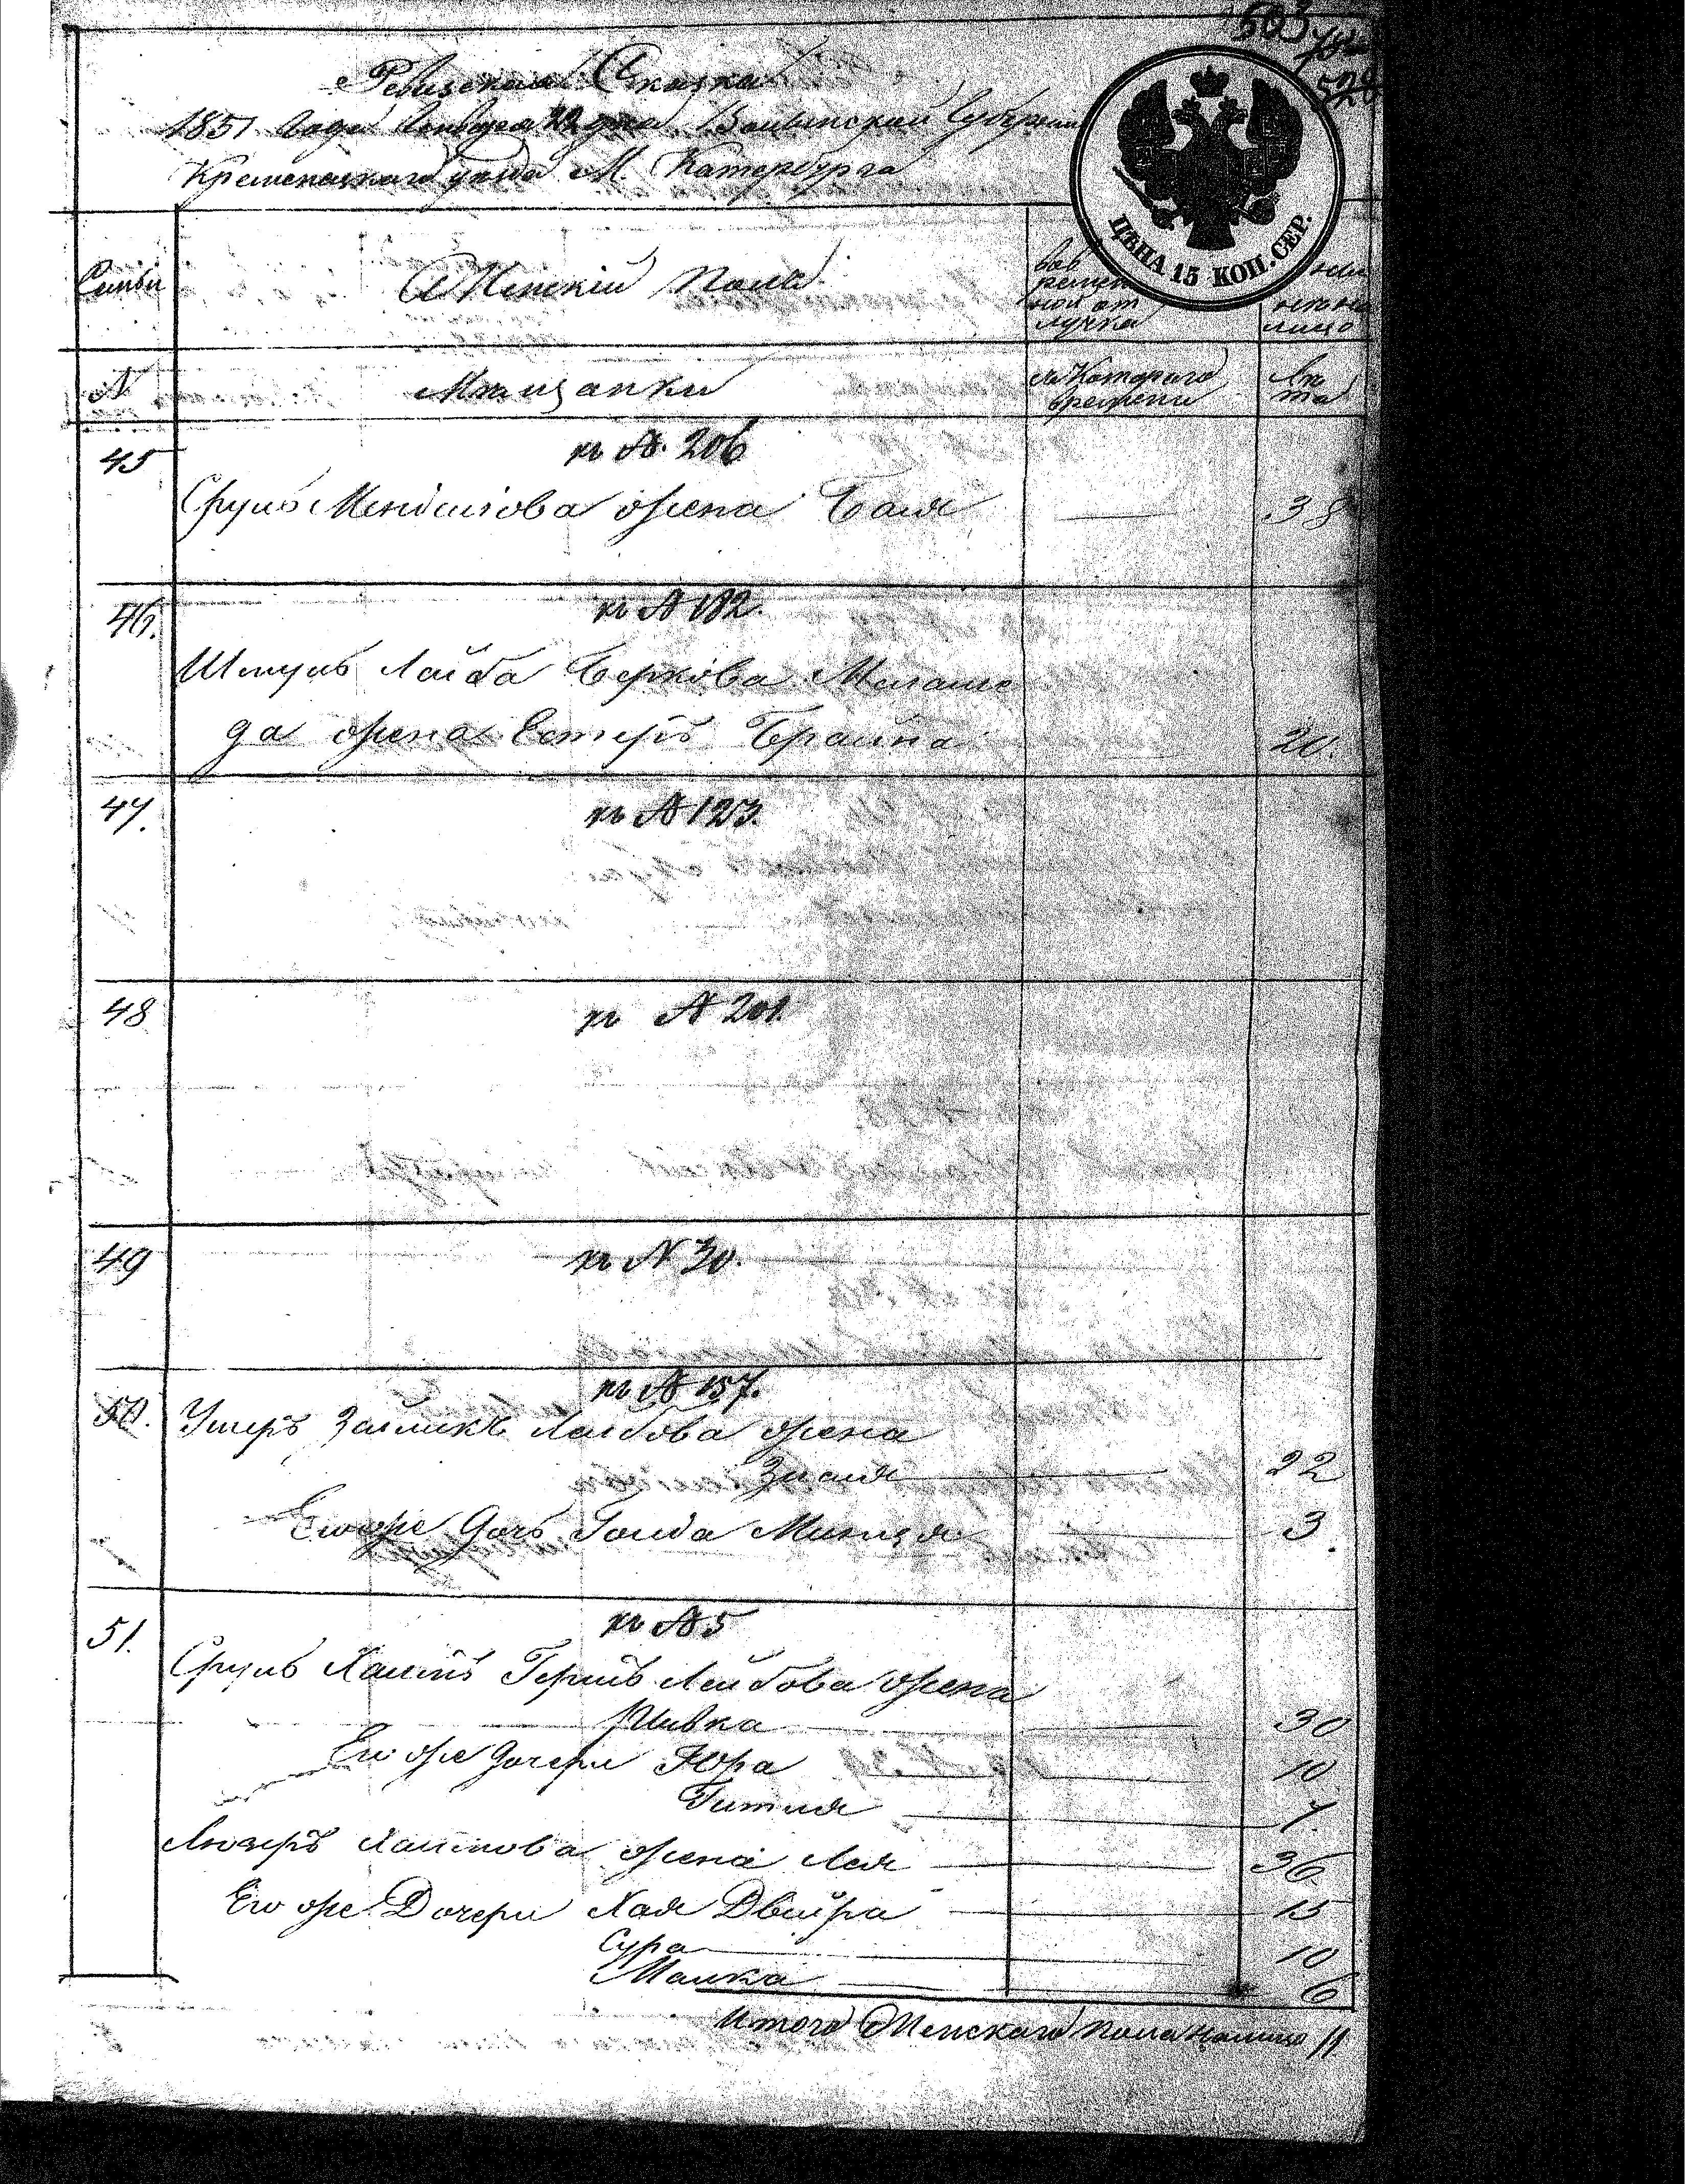 503
528
Ревизская Сказка
1851 года Генваря 22 дня. Волынской Губернии
Кременецкаго уезда М. Катербурга
ЦѢНА 15 КОП. СЕР.
Семьи
Женскій Полъ
вовременной отлучка
лицо
N
Мѣщанки
съ Котораго времени
Лѣта
45
къ № 206
Сруль Менделіова жена Бася
38
46.
къ № 182.
Шмуль Лейба Берκова
да жена Естеръ Брайна
20.
47.
къ № 123.
48
къ № 201.
49
къ N 30.
50.
къ № 157.
Ушеръ Зелікъ Лейбова жена
Зися
22
Его же Дочь Гольда Минця
3.
51.
къ № 5
Сруль Хаимъ Гершъ Лейбова жена
Ривка
30
Его же дочери Юра
10
Гитля
7.
Люзеръ Хаимова жена Лея
36
Его же Дочери Хая Двейра
15
Сура
10
Малка
6
Итого Женскаго пола налицо 11